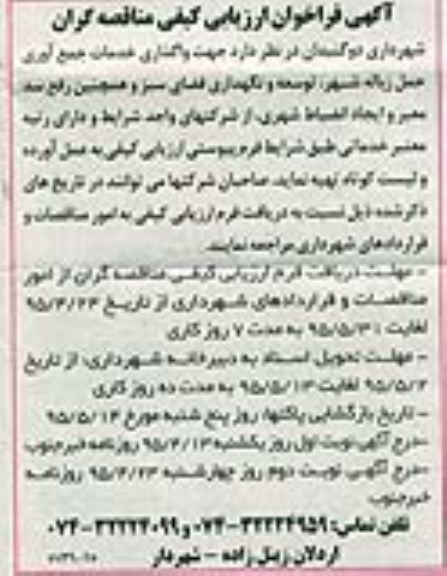 آگهی فراخوان ارزیابی کیفی مناقصه گران
شهرداری دوگنبدان در نظر دارد جهت واگذاری خدمات جمع آوری
حمل زباله شهر، توسعه و نگهداری فضای سبز و همچنین رفع سد
معبر و ایجاد انضباط شهری، از شرکتهای واجد شرایط و دارای رتبه
معتبر خدماتی طبق شرایط فرم پیوستی ارزیابی کیفی به عمل آورده
و لیست کوتاه تهیه نماید. صاحبان شرکتها می توانند در تاریخ های
ذکر شده ذیل نسبت به دریافت فرم ارزیابی کیفی به امور مناقصات و
قراردادهای شهرداری مراجعه نمایند.
- مهلت دریافت فرم ارزیابی کیفی مناقصه گران از امور
مناقصات و قراردادهای شهرداری از تاریخ ۹۵/۴/۲۳
لغایت ۹۵/۵/۳ به مدت ۷ روز کاری
- مهلت تحویل اسناد به دبیرخانه شهرداری: از تاریخ
۹۵/۵/۲ لغایت ۹۵/۵/۱۳ به مدت ده روز کاری
- تاریخ بازگشایی پاکتها: روز پنج شنبه مورخ ۹۵/۵/۱۴
-درج آگهی نوبت اول روز یکشنبه ۹۵/۴/۱۳ روزنامه خبرجنوب
-درج آگهی نوبت دوم روز چهارشنبه ۹۵/۴/۲۳ روزنامه
خبرجنوب
تلفن تماس: ۳۲۲۲۴۹۵۹-۰۷۴ و ۳۲۲۲۴۰۹۹-۰۷۴
شهردار